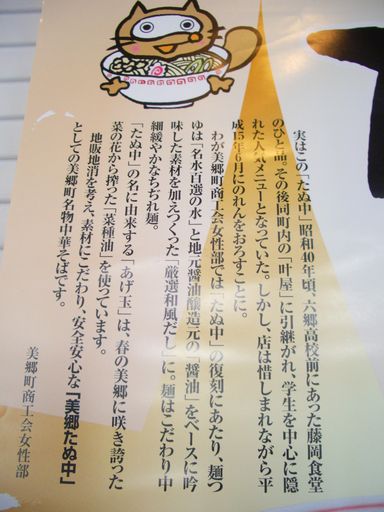 実はこの「たぬ中」昭和40年頃、六郷高校前にあった藤岡食堂
のひと品。その後同町内の「叶屋」に引継がれ、学生を中心に隠
れた人気メニューとなっていた。しかし、店は惜しまれながら平
成15年6月にのれんをおろすことに。
わが美郷町商工会女性部では「たぬ中」の復刻にあたり、麺つ
ゆは「名水百選の水」と地元醤油醸造元の「醤油」をベースに吟
味した素材を加えつくった「厳選和風だし」に。麺はこだわり中
細緩やかなちぢれ麺。
「たぬ中」の名に由来する「あげ玉」は、春の美郷に咲き誇った
菜の花から搾った「菜種油」を使っています。
地販地消を考え、素材にこだわり、安全安心な「美郷たぬ中」
としての美郷町名物中華そばです。
美郷町商工会女性部